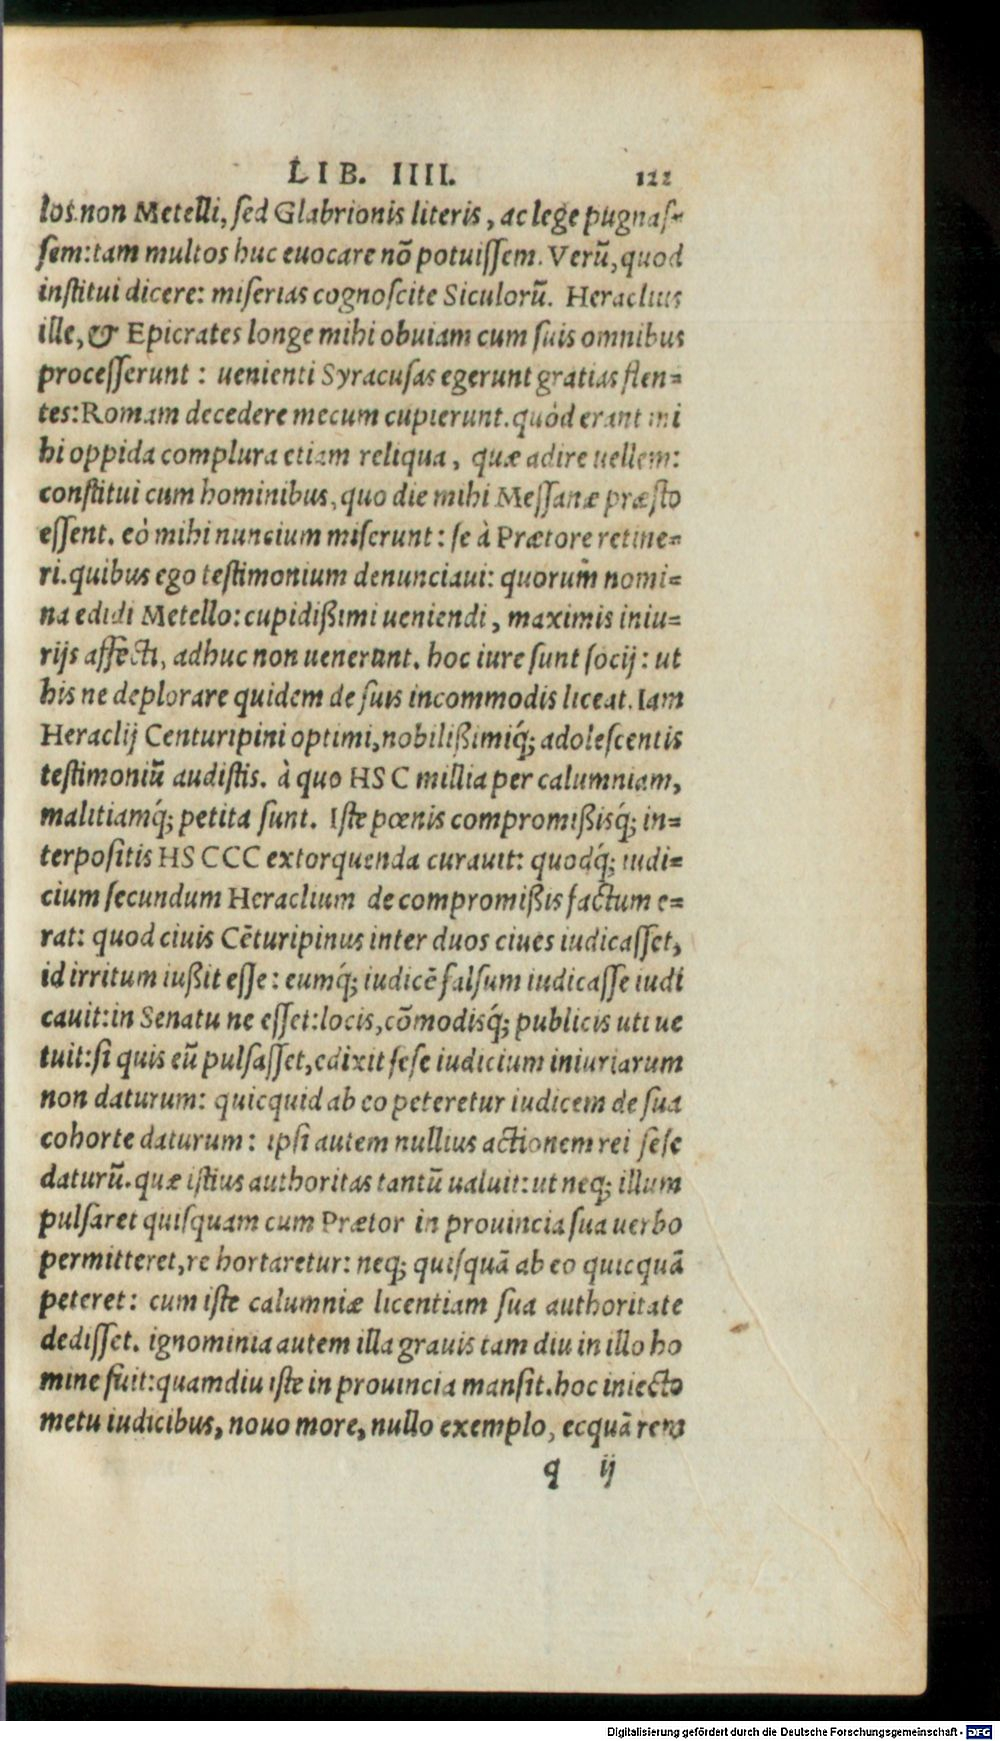 LIB. IIII. 122
los.non Metelli, sed Glabrionis literis, ac lege pugnaſ-
ſem:tam multos huc euocare nõ potuiſſem. Verũ, quod
inſtitui dicere: miſerias cognoſcite Siculorũ. Heraclius
ille, & Epicrates longe mihi obuiam cum ſuis omnibus
proceſſerunt : uenienti Syracuſas egerunt gratias flen=
tes:Romam decedere mecum cupierunt. quòd erant mi
hi oppida complura etiam reliqua, quæ adire uellem:
conſtitui cum hominibus, quo die mihi Meſſanæ præſto
eſſent. eò mihi nuncium miſerunt: ſe à Prætore retine=
ri. quibus ego teſtimonium denunciaui: quorum nomi=
na edidi Metello: cupidißimi ueniendi, maximis iniu=
rijs affecti, adhuc non uenerunt. hoc iure ſunt ſocij: ut
his ne deplorare quidem de ſuis incommodis liceat. Iam
Heraclij Centuripini optimi, nobilißimiq́; adoleſcentis
teſtimoniũ audiſtis. à quo HS C millia per calumniam,
malitiamq́; petita ſunt. Iſte pœnis compromißisq́; in=
terpoſitis HS CCC extorquenda curauit: quodq́; iudi=
cium ſecundum Heraclium de compromißis factum e=
rat: quod ciuis Cẽturipinus inter duos ciues iudicaſſet,
id irritum iußit eſſe: eumq́; iudicẽ falſum iudicaſſe iudi
cauit: in Senatu ne eſſet: locis, cõmodisq́; publicis uti ue
tuit: ſi quis eũ pulſaſſet, edixit ſeſe iudicium iniuriarum
non daturum: quicquid ab eo peteretur iudicem de ſua
cohorte daturum: ipſi autem nullius actionem rei ſeſe
daturũ. quæ iſtius authoritas tantũ ualuit: ut neq; illum
pulſaret quiſquam cum Prætor in prouincia ſua uerbo
permitteret, re hortaretur: neq; quiſquã ab eo quicquã
peteret: cum iſte calumniæ licentiam ſua authoritate
dediſſet. ignominia autem illa grauis tam diu in illo ho
mine fuit: quamdiu iſte in prouincia manſit. hoc iniecto
metu iudicibus, nouo more, nullo exemplo, ecquã rem
q ij
Digitalisierung gefördert durch die Deutsche Forschungsgemeinschaft - DFG